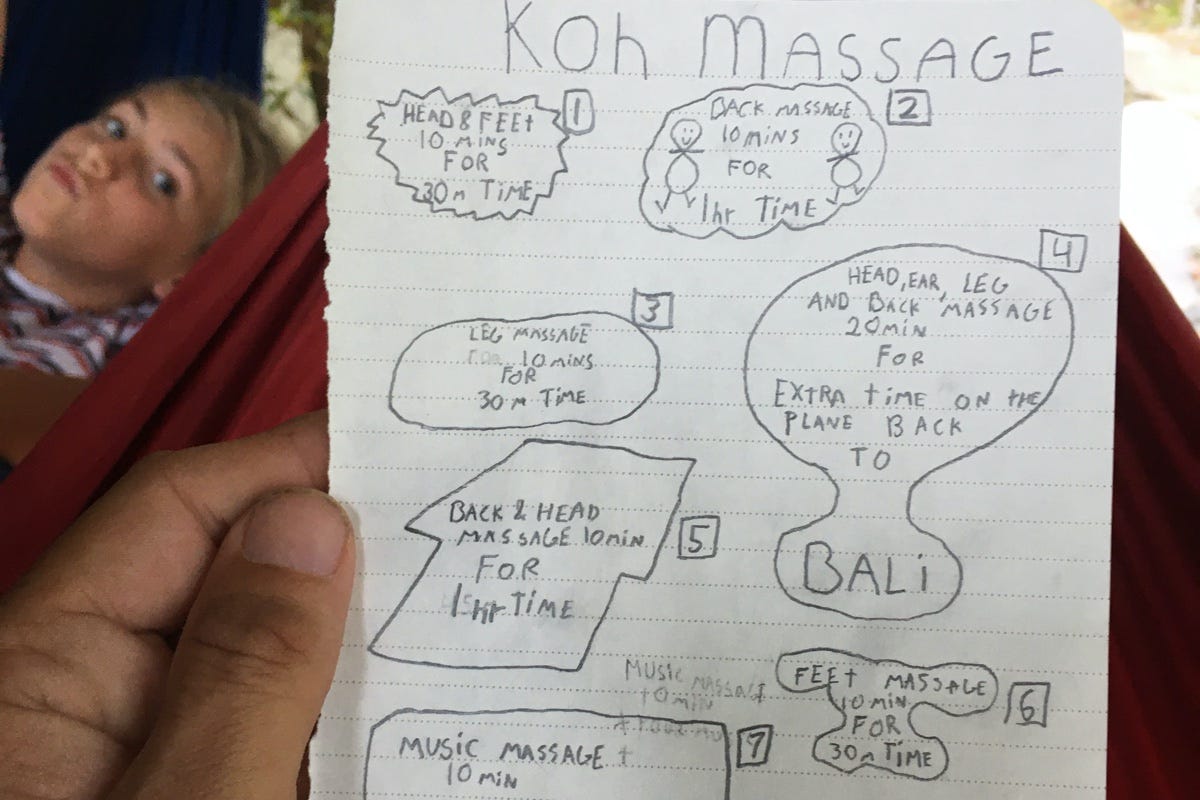 Koh MASSAGE
1
HEAD & FEEt
10 MINS
FOR
30m TiME
2
BACK MASSAGE
10 MINS
FOR
1hr TiME
3
LEG MASSAGE
10 MINS
FOR
30 m TiME
4
HEAD, EAR, LEG
AND BACK MASSAGE
20min
FOR
EXtRA tiME ON tHE
PLANE BACK
TO
BALi
5
BACK & HEAD
MASSAGE 10min
FOR
1hr TiME
6
FEEt MASSAGE
10 Min
FOR
30m TiME
MUSIC MASSAGE
10 MiN
7
MUSIC MASSAGE +
10 MIN